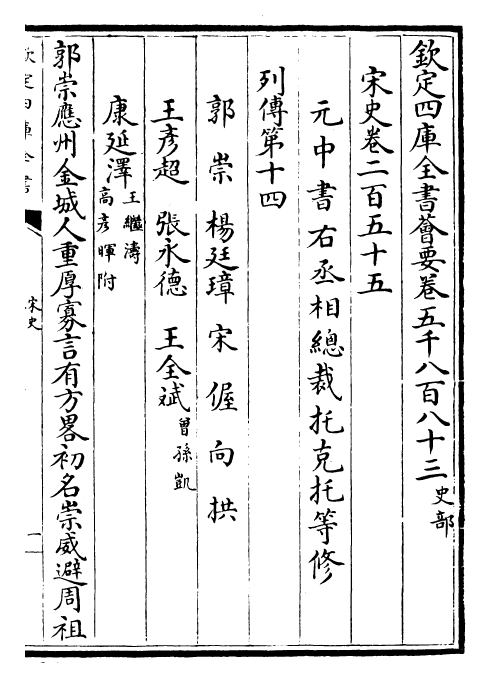 欽定四庫全書薈要卷五千八百八十三史部
宋史卷二百五十五
元中書右丞相總裁托克托等修
列傳第十四
郭崇 楊廷璋 宋偓 向拱
王彥超 張永德 王全斌曾孫凱
康延澤王繼濤高彥暉附
郭崇應州金城人重厚寡言有方畧初名崇威避周祖
欽定四庫全書
宋史
一